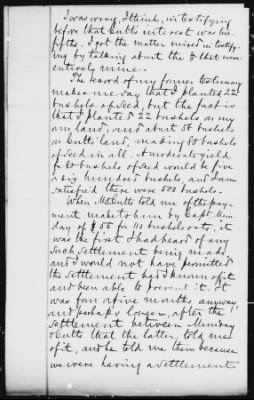 I was wrong, I think, in testifying
before that Cutts interest was two
fifths. I got the matter mixed in testify-
ing by talking about the ⅗ that were
entirely mine.
The record of my former testimony
makes me say that I planted 22
bushels of seed, but the fact is
that I planted 22 bushels on my
own land, and about 58 bushels
on Cutts' land, making 80 bushels
of seed in all. A moderate yield
for 80 bushels of seed would be five
or six hundred bushels, and I am
satisfied there were 500 bushels.
When Mr Cutts told me of the pay-
ment made to him by Capt. Mun-
day of $55 for 110 bushels oats, it
was the first I had heard of any
such settlement being made,
and I would not have permitted
the settlement had I known of it
and been able to prevent it. It
was four or five months anyway,
and perhaps longer, after the
settlement between Munday
& Cutts that the latter told me
of it, and he told me then because
we were having a settlement